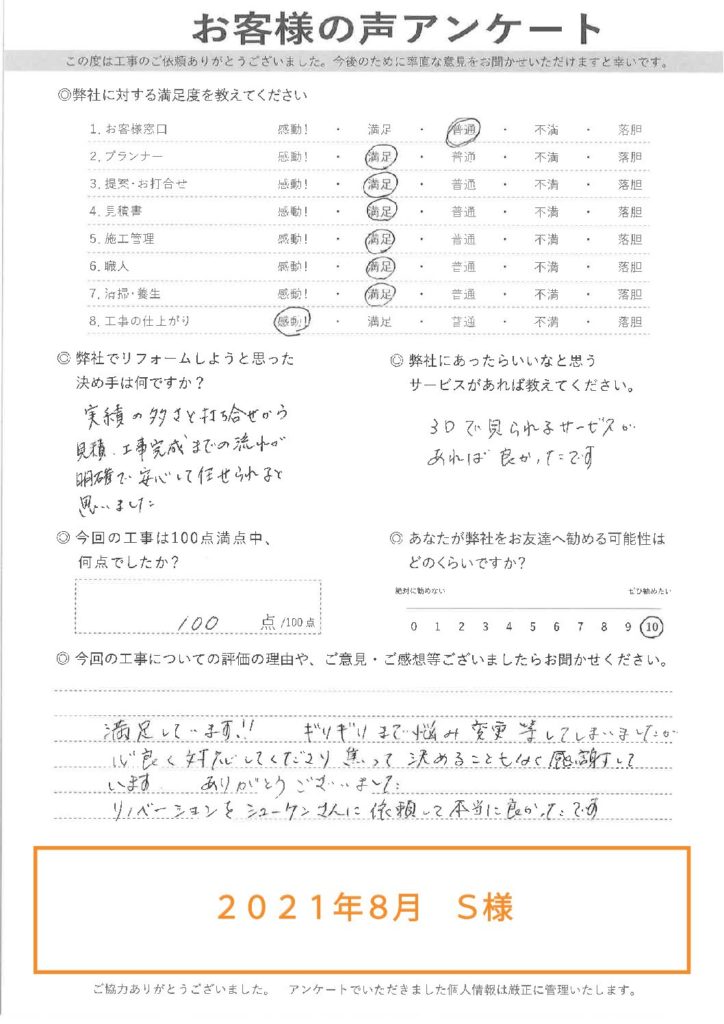 お客様の声アンケート
この度は工事のご依頼ありがとうございました。今後のために率直な意見をお聞かせいただけますと幸いです。
◎弊社に対する満足度を教えてください
1. お客様窓口 感動! ・ 満足 ・ 普通 ・ 不満 ・ 落胆
2. プランナー 感動! ・ 満足 ・ 普通 ・ 不満 ・ 落胆
3. 提案・お打合せ 感動! ・ 満足 ・ 普通 ・ 不満 ・ 落胆
4. 見積書 感動! ・ 満足 ・ 普通 ・ 不満 ・ 落胆
5. 施工管理 感動! ・ 満足 ・ 普通 ・ 不満 ・ 落胆
6. 職人 感動! ・ 満足 ・ 普通 ・ 不満 ・ 落胆
7. 清掃・養生 感動! ・ 満足 ・ 普通 ・ 不満 ・ 落胆
8. 工事の仕上がり 感動! ・ 満足 ・ 普通 ・ 不満 ・ 落胆
◎ 弊社でリフォームしようと思った
決め手は何ですか？
実績の多さと打ち合せから
見積、工事完成までの流れが
明確で安心して任せられると
思いました
◎ 弊社にあったらいいなと思う
サービスがあれば教えてください。
3Dで見られるサービスが
あれば良かったです
◎ 今回の工事は100点満点中、
何点でしたか？
100 点 /100点
◎ あなたが弊社をお友達へ勧める可能性は
どのくらいですか？
絶対に勧めない ぜひ勧めたい
0 1 2 3 4 5 6 7 8 9 10
◎ 今回の工事についての評価の理由や、ご意見・ご感想等ございましたらお聞かせください。
満足しています!! ギリギリまで悩み変更等してしまいましたが
心良く対応してくださり焦って決めることもなく感謝して
います。 ありがとうございました
リノベーションをシューケンさんに依頼して本当に良かったです
２０２１年８月 Ｓ様
ご協力ありがとうございました。 アンケートでいただきました個人情報は厳正に管理いたします。